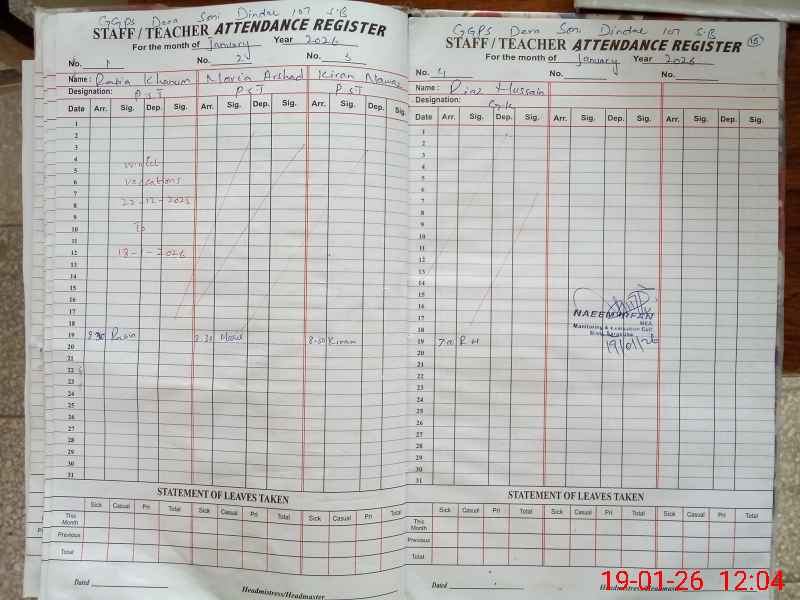 GGPS Dera Soni Dindar 107 S.B
STAFF / TEACHER ATTENDANCE REGISTER
For the month of January Year 2026
No. 1 No. 2 No. 3
Name: Rabia Khanum Maria Arshad Kiran Nawaz
Designation: PST PST PST
Date Arr. Sig. Dep. Sig. Arr. Sig. Dep. Sig. Arr. Sig. Dep. Sig.
1
2
3
4
5
6 vacations
7
8 22-12-2025
9
10 To
11
12 18-1-2026
13
14
15
16
17
18
19 8:30 Rabia 8:30 Maria 8:30 Kiran
20
21
22
23
24
25
26
27
28
29
30
31
STATEMENT OF LEAVES TAKEN
Sick Casual Pri Total Sick Casual Pri Total Sick Casual Pri Total
This Month
Previous
Total
Dated
Headmistress/Headmaster
GGPS Dera Soni Dindar 107 S.B
STAFF / TEACHER ATTENDANCE REGISTER
For the month of January Year 2026
No. 4 No. No.
Name: Riaz Hussain
Designation:
Date Arr. Sig. Dep. Sig. Arr. Sig. Dep. Sig. Arr. Sig. Dep. Sig.
1
2
3
4
5
6
7
8
9
10
11
12
13
14
15
16
17
18
19 7:00 R H
20
21
22
23
24
25
26
27
28
29
30
31
NAEEM IRFAN
MEA
Monitoring & Evaluation Cell
19/01/26
STATEMENT OF LEAVES TAKEN
Sick Casual Pri Total Sick Casual Pri Total Sick Casual Pri Total
This Month
Previous
Total
Dated
Headmistress/Headmaster
19-01-26 12:04